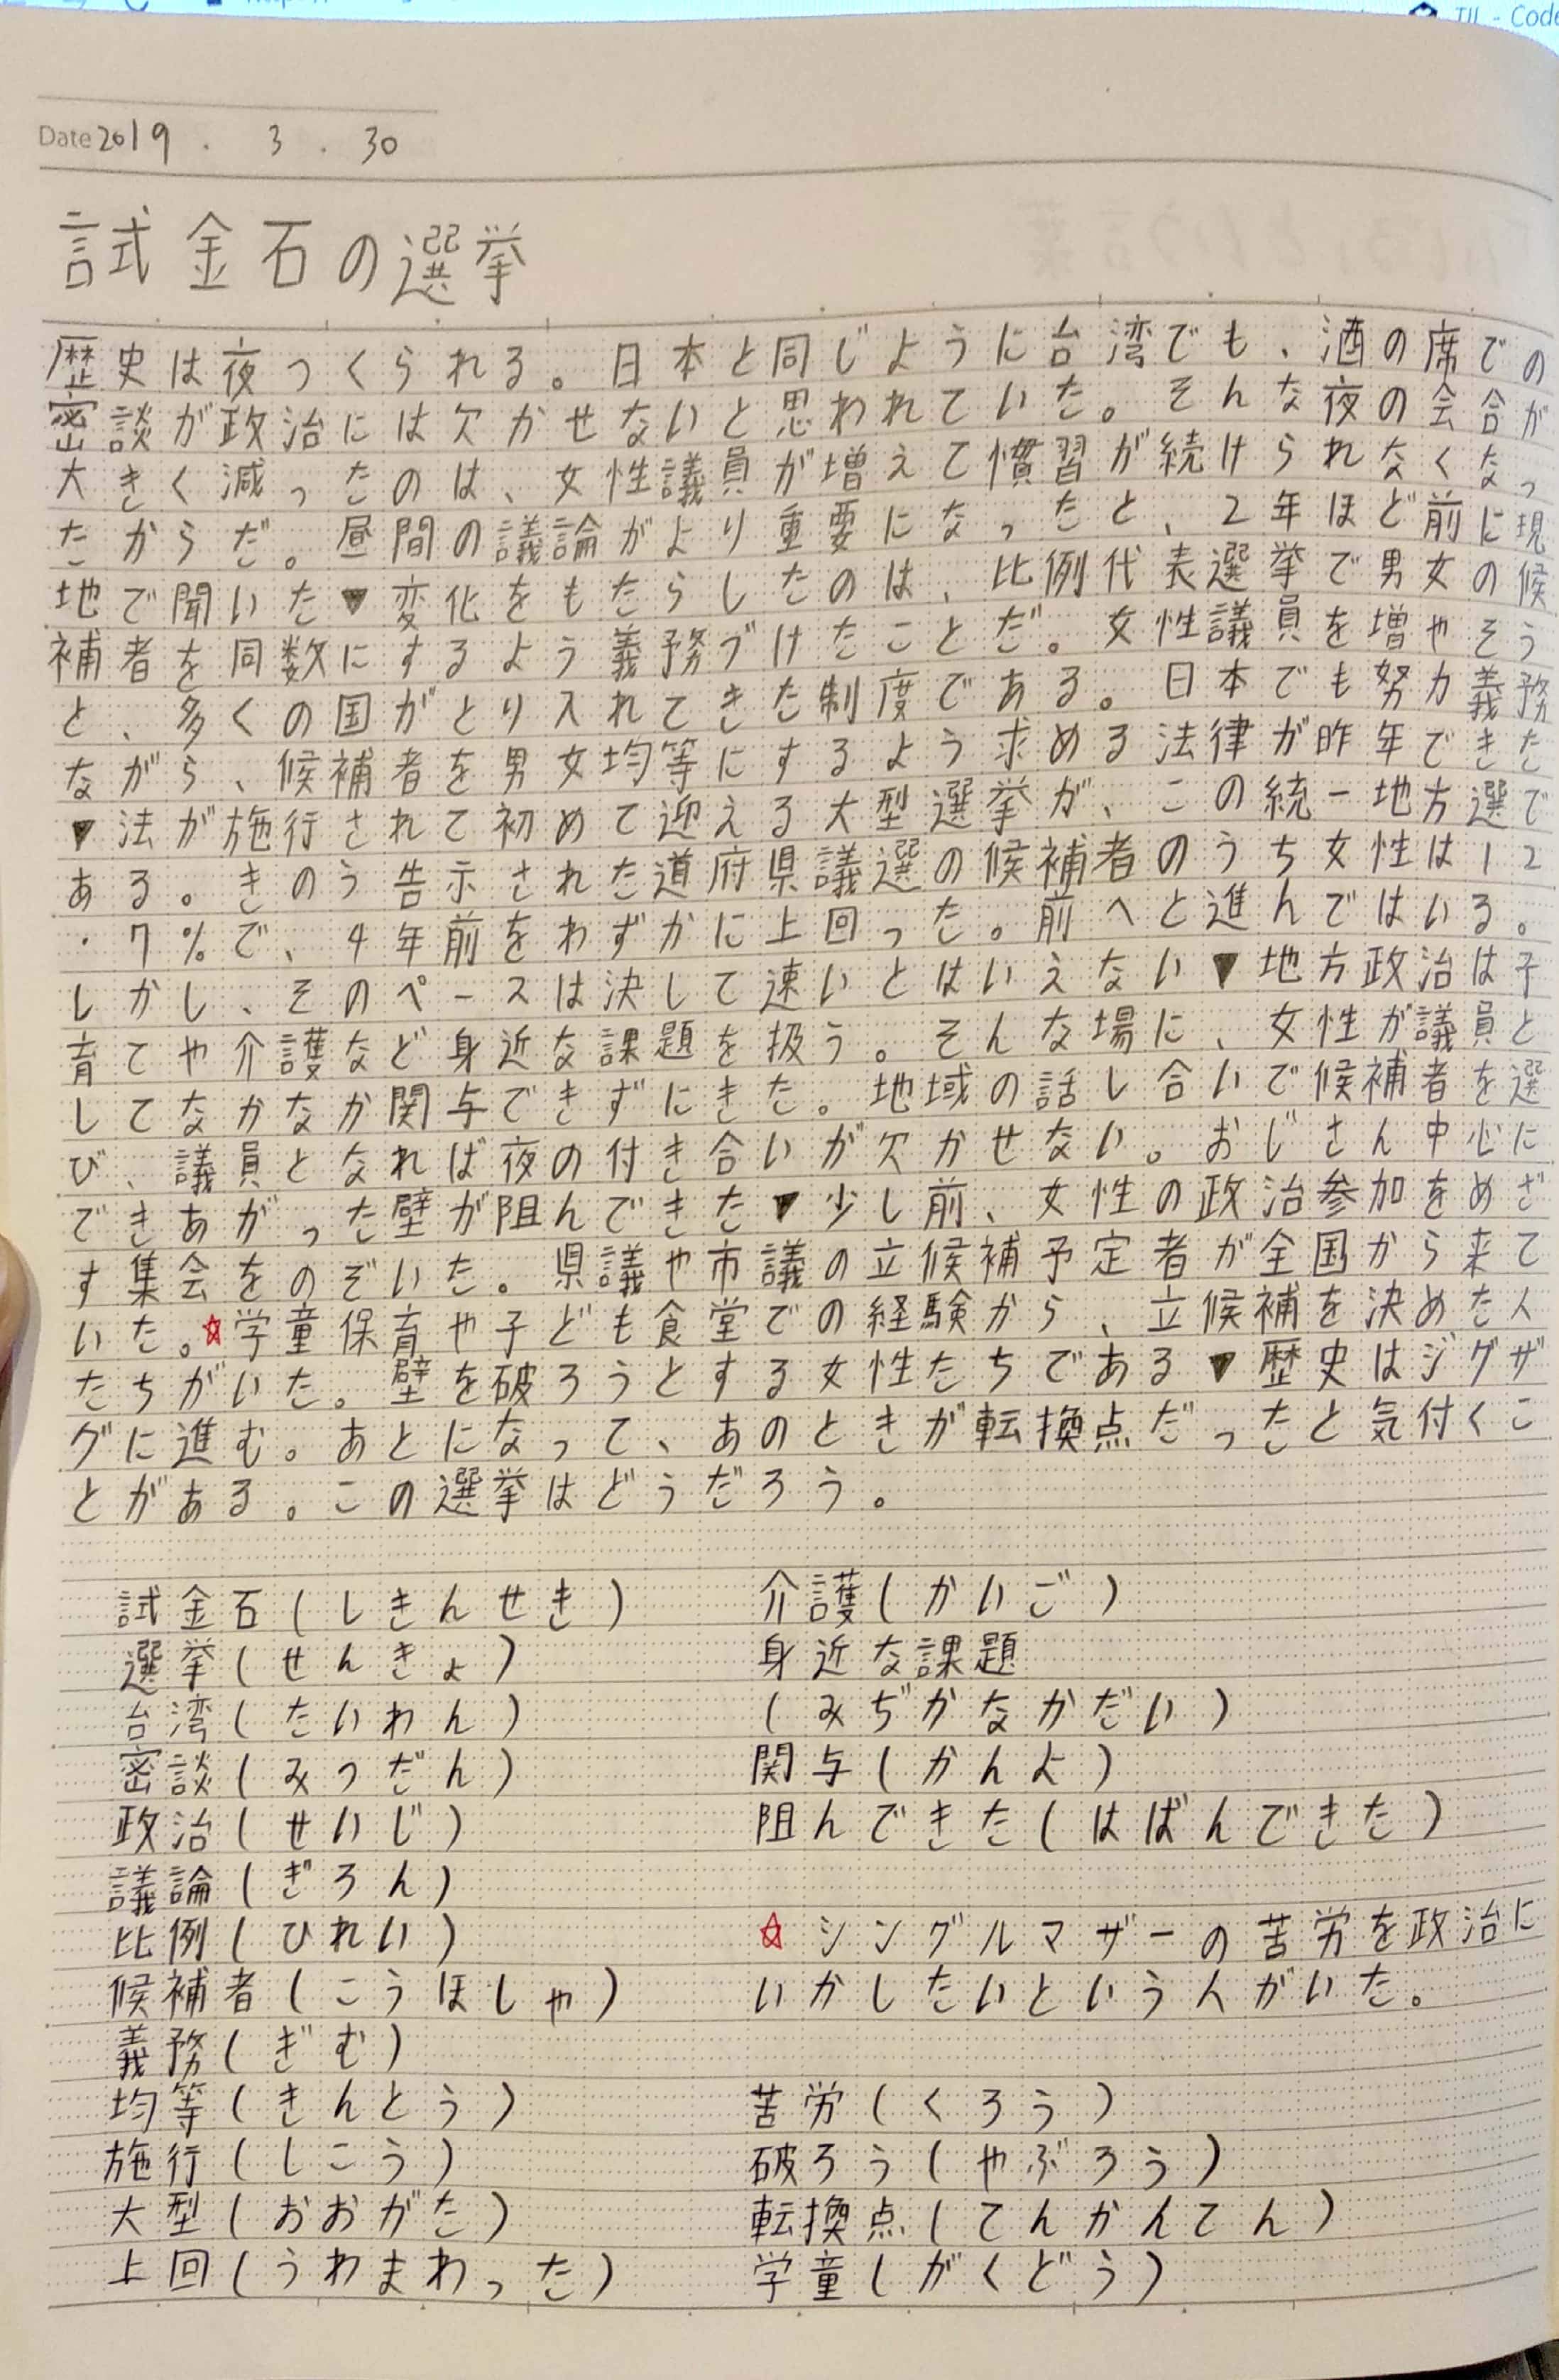 Date 2019 . 3 . 30
試金石の選挙
歴史は夜つくられる。日本と同じように台湾でも、酒の席での
密談が政治には欠かせないと思われていた。そんな夜の会合が
大きく減ったのは、女性議員が増えて慣習が続けられなくなっ
たからだ。昼間の議論がより重要になったと、2年ほど前に現
地で聞いた▼変化をもたらしたのは、比例代表選挙で男女の候
補者を同数にするよう義務づけたことだ。女性議員を増やそう
と、多くの国がとり入れてきた制度である。日本でも努力義務
ながら、候補者を男女均等にするよう求める法律が昨年できた
▼法が施行されて初めて迎える大型選挙が、この統一地方選で
ある。きのう告示された道府県議選の候補者のうち女性は12
・7%で、4年前をわずかに上回った。前へと進んではいる。
しかし、そのペースは決して速いとはいえない▼地方政治は子
育てや介護など身近な課題を扱う。そんな場に、女性が議員と
してなかなか関与できずにきた。地域の話し合いで候補者を選
び、議員となれば夜の付き合いが欠かせない。おじさん中心に
できあがった壁が阻んできた▼少し前、女性の政治参加をめざ
す集会をのぞいた。県議や市議の立候補予定者が全国から来て
いた。☆学童保育や子ども食堂での経験から、立候補を決めた人
たちがいた。壁を破ろうとする女性たちである▼歴史はジグザ
グに進む。あとになって、あのときが転換点だったと気付くこ
とがある。この選挙はどうだろう。
試金石(しきんせき)
選挙(せんきょ)
台湾(たいわん)
密談(みつだん)
政治(せいじ)
議論(ぎろん)
比例(ひれい)
候補者(こうほしゃ)
義務(ぎむ)
均等(きんとう)
施行(しこう)
大型(おおがた)
上回(うわまわった)
介護(かいご)
身近な課題
(みぢかなかだい)
関与(かんよ)
阻んできた(はばんできた)
☆シングルマザーの苦労を政治に
いかしたいという人がいた。
苦労(くろう)
破ろう(やぶろう)
転換点(てんかんてん)
学童(がくどう)